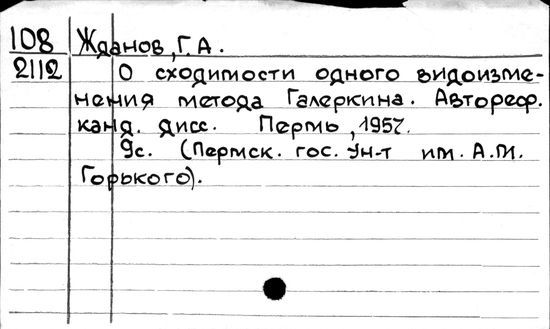 108 Жданов, Г. А.
2112 О сходимости одного видоизме-
нения метода Галеркина. Автореф.
канд. дисс. Пермь, 1957.
9с. (Пермск. гос. Ун-т им. А.М.
Горького).